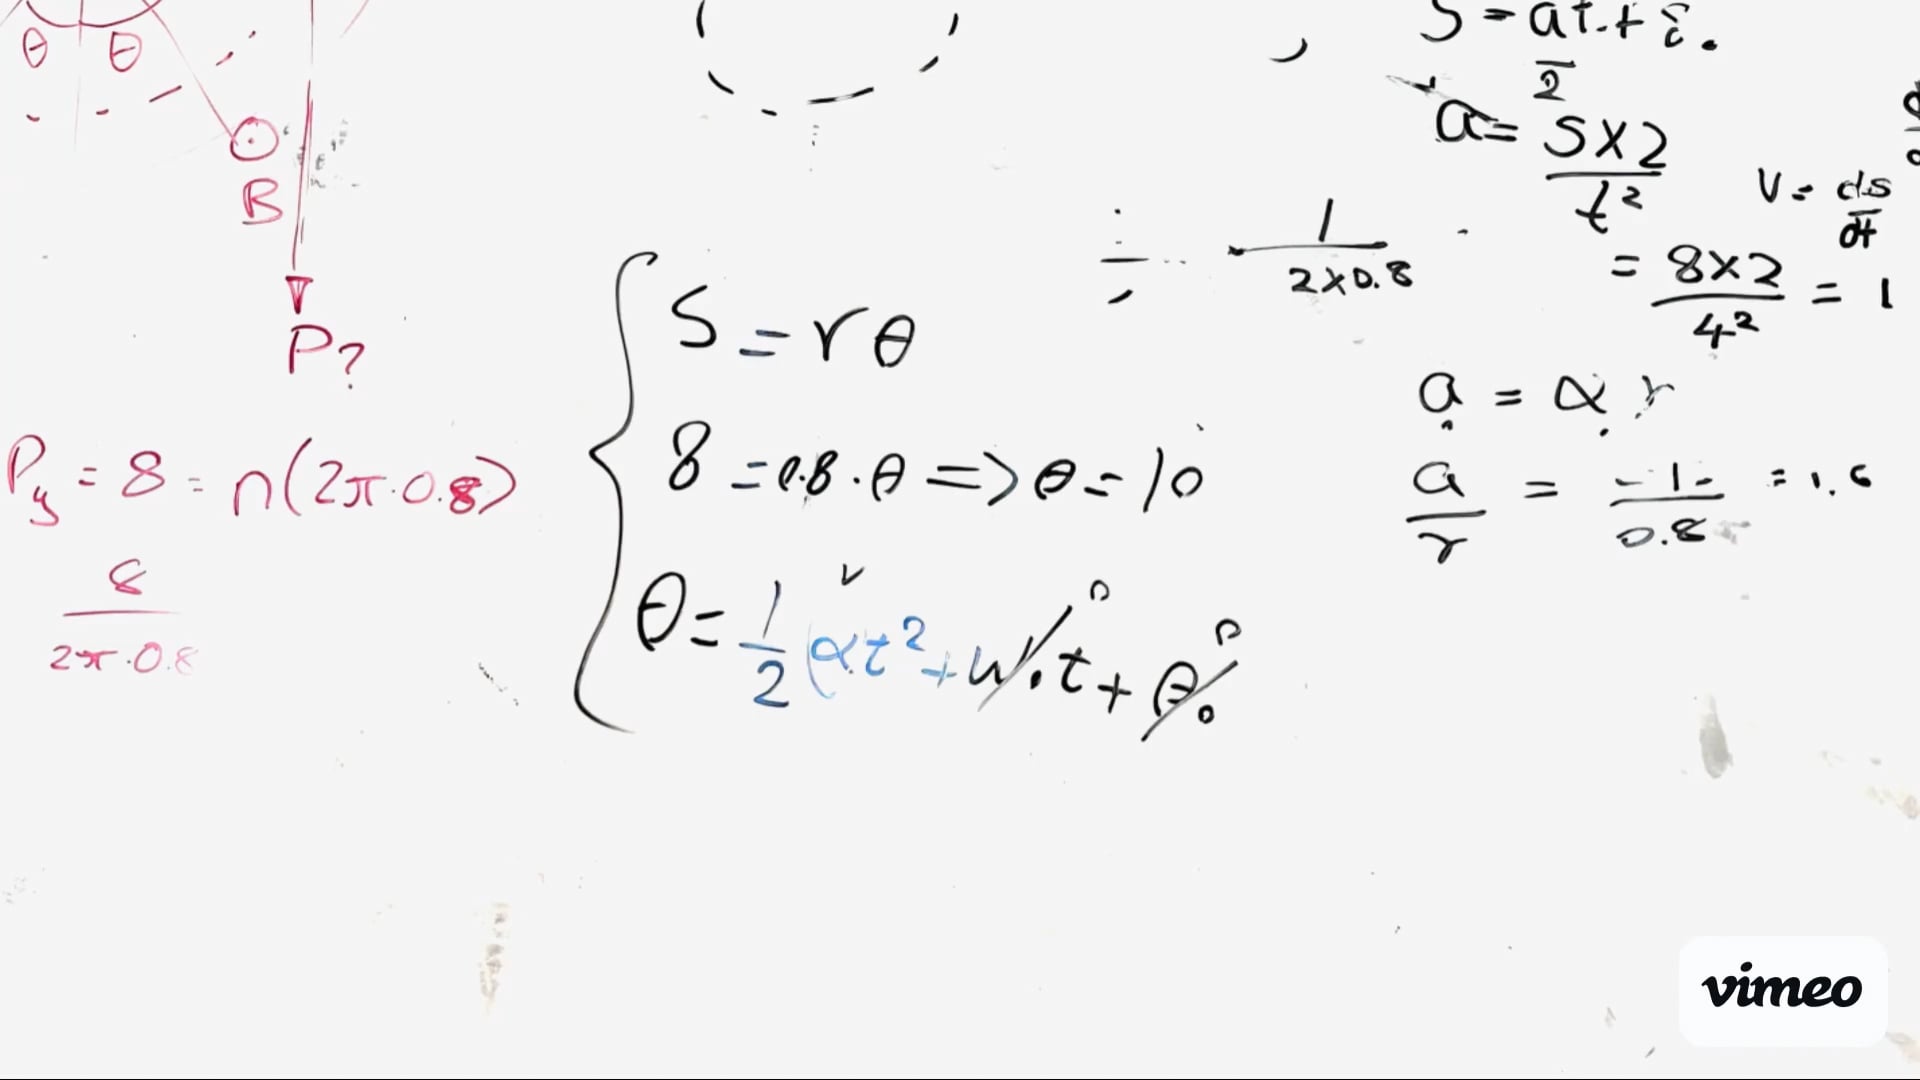 θ θ
B
P?
Py = 8 = n(2π·0.8)
8
2π·0.8
S = rθ
8 = 0.8·θ => θ = 10
θ = 1/2 (αt² + ω₀t + θ₀
1
2×0.8
a = S×2
t²
V = ds
dt
= 8×2 = 1
4²
a = α r
a = 1 =
r 0.8
vimeo